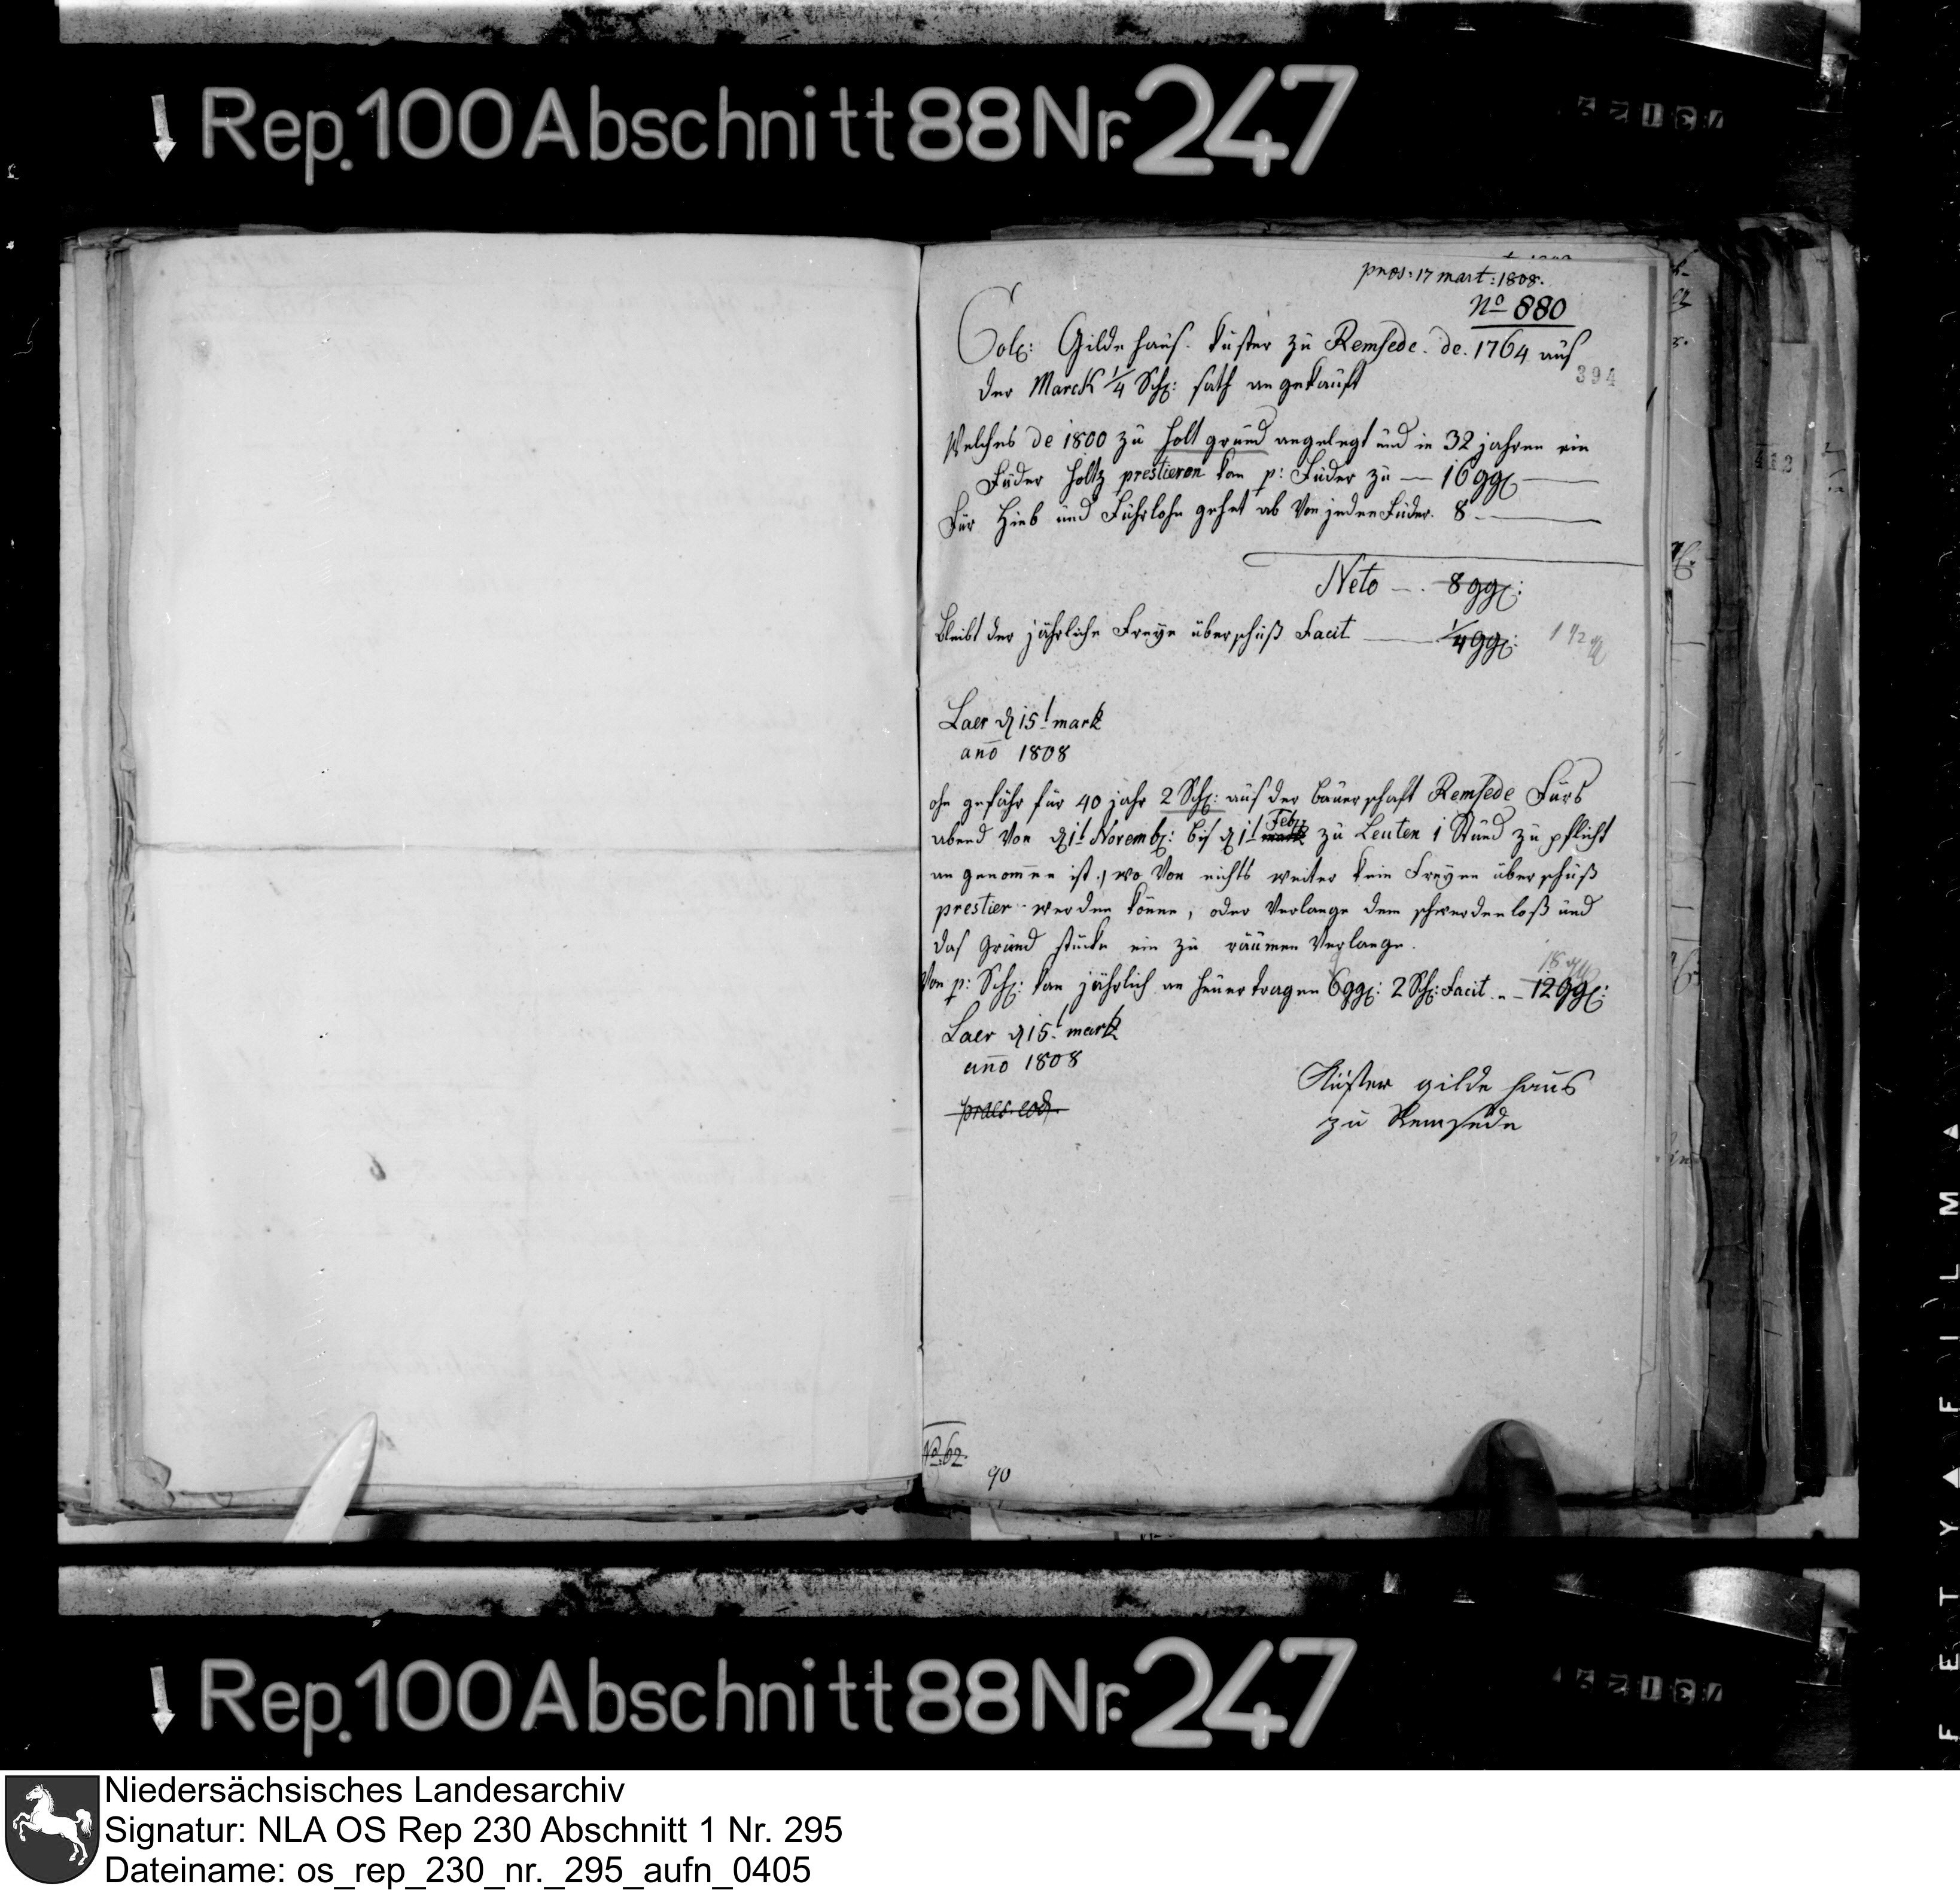 Rep. 100 Abschnitt 88 Nr. 247
praes: 17 mart: 1808.
No 880
Col: Gildehaus. Küster zu Remsede. de. 1764 aus
394
der Marck 1/4 Sch: sath an gekauft
Welches de 1800 zu holt grund angelegt und in 32 jahren ein
Fuder holtz prestieren kan p: Fuder zu — 16 ggl —
Für Hieb und Fuhrlohn gehet ab Von jeden Fuder. 8 —
Neto —. 8 ggl:
Bleibt der jährliche Freye überschuß Facit — 1/4 ggl: 1 1/2
Laer d 15t mart
ano 1808
ohn gefähr für 40 jahr 2 Sch: aus der Bauerschaft Remsede Fürs
abend Von d 1t Novemb: bis d 1t mart Feb: zu Leuten 1 Stund zu pflicht
an genommen ist, wo Von nichts weiter kein Freyen überschuß
prestier werden könne, oder Verlange dem losß und
das Grund stücke ein zu räumen Verlange.
18
Von p: Sch: kan jährlich an heuer tragen 6 ggl: 2 Sch: Facit .. 12 ggl:
Laer d 15t mart
ano 1808
praes. eod.
Küster gilde haus
zu Remsede
No. 62.
90
Rep. 100 Abschnitt 88 Nr. 247
Niedersächsisches Landesarchiv
Signatur: NLA OS Rep 230 Abschnitt 1 Nr. 295
Dateiname: os_rep_230_nr._295_aufn_0405